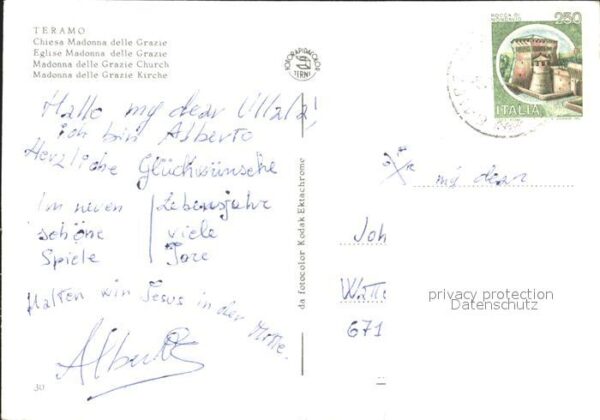 TERAMO
Chiesa Madonna delle Grazie
Eglise Madonna delle Grazie
Madonna delle Grazie Church
Madonna delle Grazie Kirche
ROCCA DI
MONDAVIO
250
ITALIA
Hallo my dear
ich bin Alberto
Herzliche Glückwünsche
Im neuen Lebensjahre
schöne viele
Spiele Tore
Halten wir Jesus in der Mitte.
Alberto
30
da fotocolor Kodak Ektachrome
my dear
Joh
Watte
671
privacy protection
Datenschutz